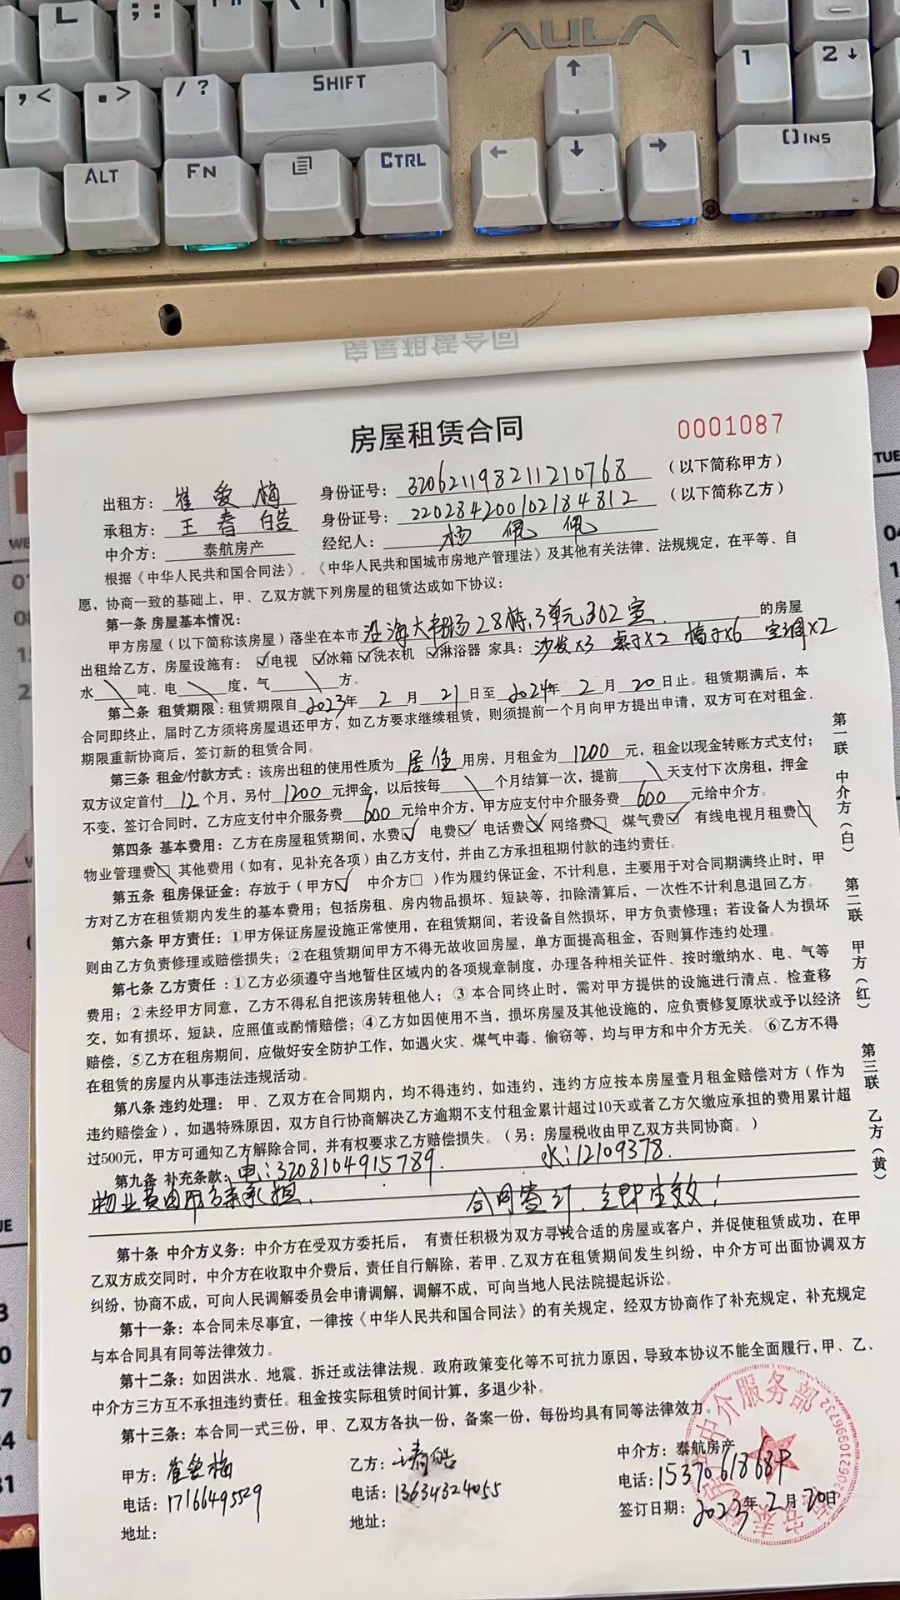 L
; :
, <
. >
/ ?
SHIFT
ALT
FN
CTRL
AULA
↑
←
↓
→
1
2 ↓
[] INS
房屋租赁合同
房屋租赁合同
0001087
出租方：崔爱梅 身份证号：320621198211210768（以下简称甲方）
承租方：王春皓 身份证号：220284200102184812（以下简称乙方）
中介方：泰航房产 经纪人：杨佩佩
根据《中华人民共和国合同法》。《中华人民共和国城市房地产管理法》及其他有关法律、法规规定，在平等、自
愿，协商一致的基础上，甲、乙双方就下列房屋的租赁达成如下协议：
第一条 房屋基本情况：
甲方房屋（以下简称该房屋）落坐在本市 28栋.3单元302室. 的房屋
出租给乙方，房屋设施有：☑电视 ☑冰箱 ☑洗衣机 ☑淋浴器 家具：沙发×3 桌子×2 椅子×6 空调×2
水＼吨、电＼度，气＼方。
第二条 租赁期限：租赁期限自2023年2月21日至2024年2月20日止。租赁期满后，本
合同即终止，届时乙方须将房屋退还甲方，如乙方要求继续租赁，则须提前一个月向甲方提出申请，双方可在对租金.
期限重新协商后，签订新的租赁合同。
第三条 租金/付款方式：该房出租的使用性质为居住用房，月租金为1200元，租金以现金转账方式支付；
双方议定首付12个月，另付1200元押金，以后按每＼个月结算一次，提前＼天支付下次房租，押金
不变，签订合同时，乙方应支付中介服务费600元给中介方，甲方应支付中介服务费600元给中介方。
第四条 基本费用：乙方在房屋租赁期间，水费☑ 电费☑ 电话费☑ 网络费□ 煤气费☑ 有线电视月租费□
物业管理费□ 其他费用（如有，见补充各项）由乙方支付，并由乙方承担租期付款的违约责任。
第五条 租房保证金：存放于（甲方☑ 中介方□）作为履约保证金，不计利息，主要用于对合同期满终止时，甲
方对乙方在租赁期内发生的基本费用；包括房租、房内物品损坏、短缺等，扣除清算后，一次性不计利息退回乙方。
第六条 甲方责任：①甲方保证房屋设施正常使用，在租赁期间，若设备自然损坏，甲方负责修理；若设备人为损坏
则由乙方负责修理或赔偿损失；②在租赁期间甲方不得无故收回房屋，单方面提高租金，否则算作违约处理。
第七条 乙方责任：①乙方必须遵守当地暂住区域内的各项规章制度，办理各种相关证件、按时缴纳水、电、气等
费用；②未经甲方同意，乙方不得私自把该房转租他人；③本合同终止时，需对甲方提供的设施进行清点、检查移
交，如有损坏，短缺，应照值或酌情赔偿；④乙方如因使用不当，损坏房屋及其他设施的，应负责修复原状或予以经济
赔偿，⑤乙方在租房期间，应做好安全防护工作，如遇火灾、煤气中毒、偷窃等，均与甲方和中介方无关。⑥乙方不得
在租赁的房屋内从事违法违规活动。
第八条 违约处理：甲、乙双方在合同期内，均不得违约，如违约，违约方应按本房屋壹月租金赔偿对方（作为
违约赔偿金），如遇特殊原因，双方自行协商解决乙方逾期不支付租金累计超过10天或者乙方欠缴应承担的费用累计超
过500元，甲方可通知乙方解除合同，并有权要求乙方赔偿损失。（另：房屋税收由甲乙双方共同协商。）
第九条 补充条款：电：3208104915789. 水：12109378.
物业费由甲方承担. 合同签订，立即生效！
第十条 中介方义务：中介方在受双方委托后，有责任积极为双方寻找合适的房屋或客户，并促使租赁成功，在甲
乙双方成交同时，中介方在收取中介费后，责任自行解除，若甲、乙双方在租赁期间发生纠纷，中介方可出面协调双方
纠纷，协商不成，可向人民调解委员会申请调解，调解不成，可向当地人民法院提起诉讼。
第十一条：本合同未尽事宜，一律按《中华人民共和国合同法》的有关规定，经双方协商作了补充规定，补充规定
与本合同具有同等法律效力。
第十二条：如因洪水、地震、拆迁或法律法规、政府政策变化等不可抗力原因，导致本协议不能全面履行，甲、乙、
中介方三方互不承担违约责任。租金按实际租赁时间计算，多退少补。
第十三条：本合同一式三份，甲、乙双方各执一份，备案一份，每份均具有同等法律效力。
甲方：崔爱梅 乙方：王春皓 中介方：泰航房产
电话：17166495529 电话：13634324055 电话：
地址： 地址： 签订日期：2023年2月20日
中介服务部
第一联 中介方（白）
第二联 甲方（红）
第三联 乙方（黄）
TUE